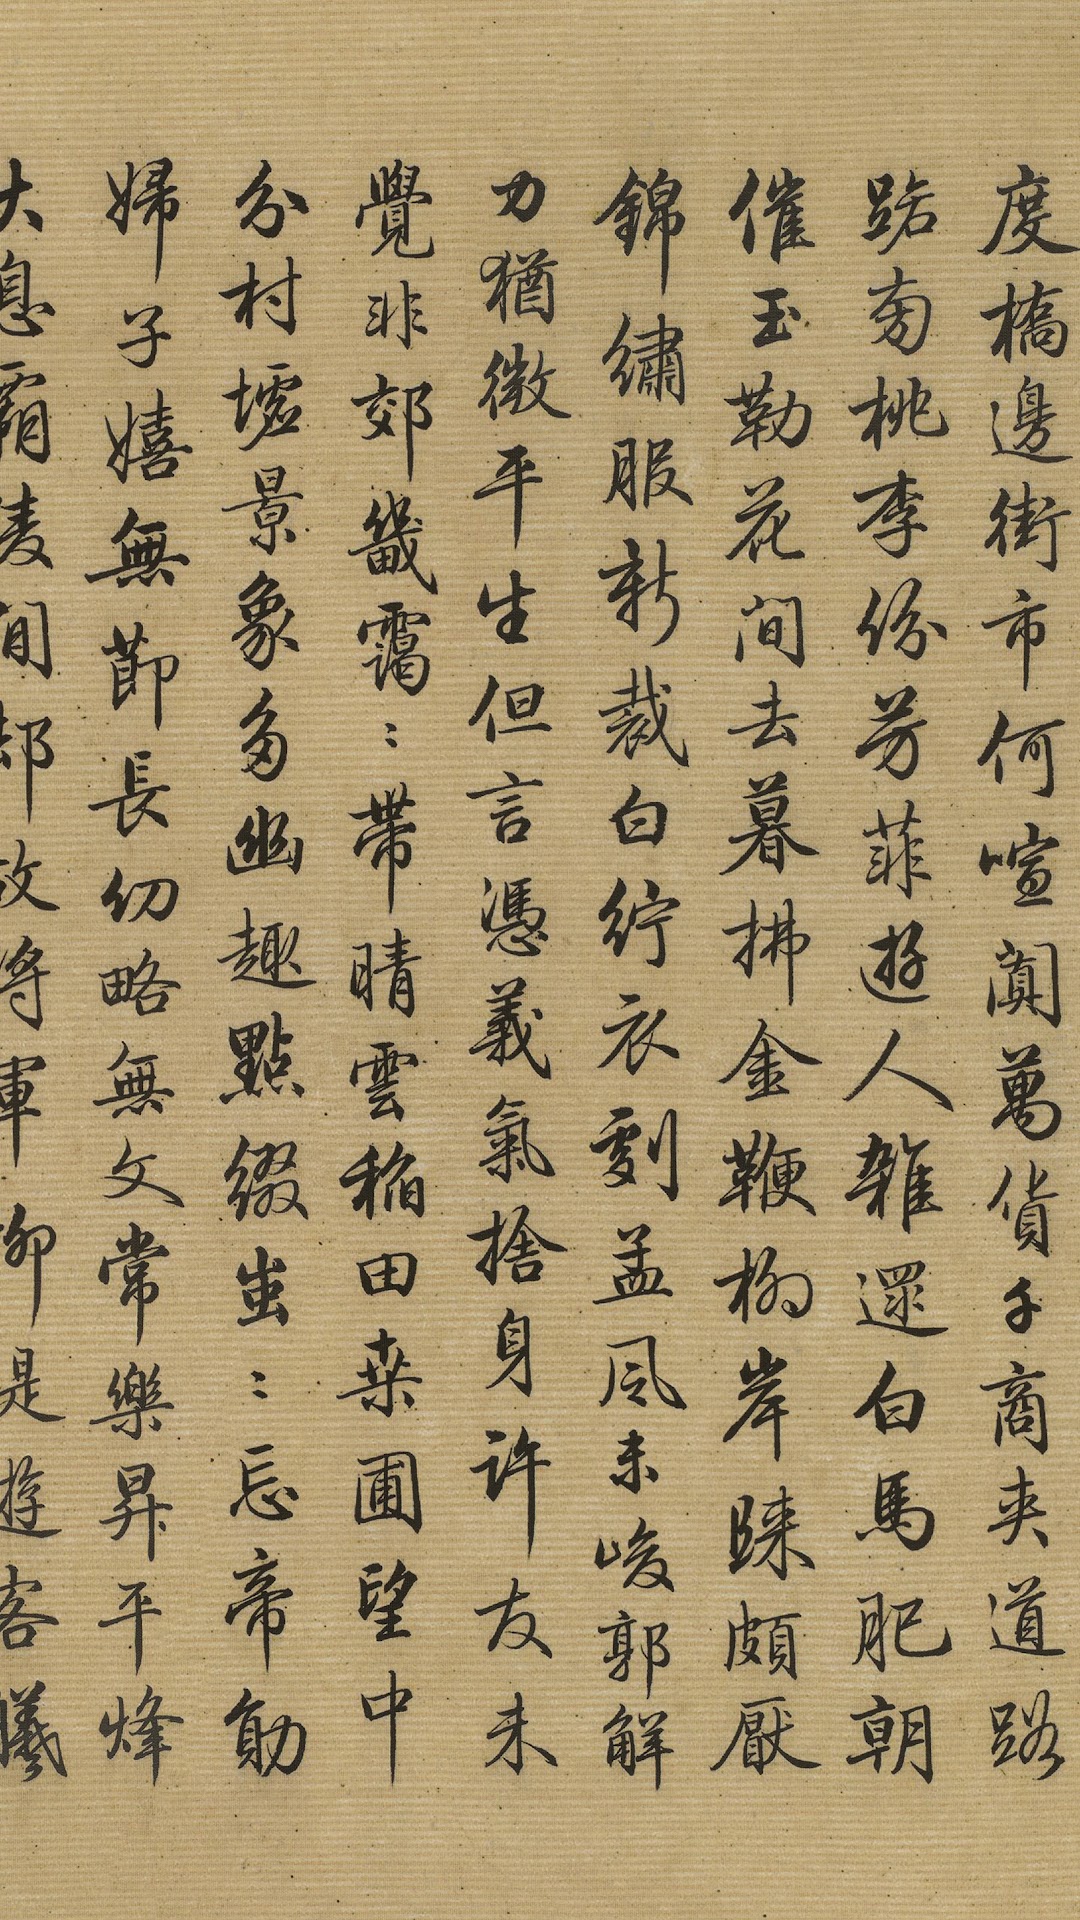 度橋邊街市何喧闐萬貨千商夾道路
路旁桃李份芳菲遊人雜還白馬肥朝
催玉勒花間去暮拂金鞭柳岸歸頗厭
錦繡服新裁白紵衣劇孟風未峻郭解
力猶微平生但言憑義氣捨身許友未
覺非郊畿靄〻帶晴雲稻田桒圃望中
分村墟景象多幽趣點綴蚩〻忘帝勛
婦子嬉無節長幼略無文常樂昇平烽
大息霸陵閒却故將軍聊是遊客曦